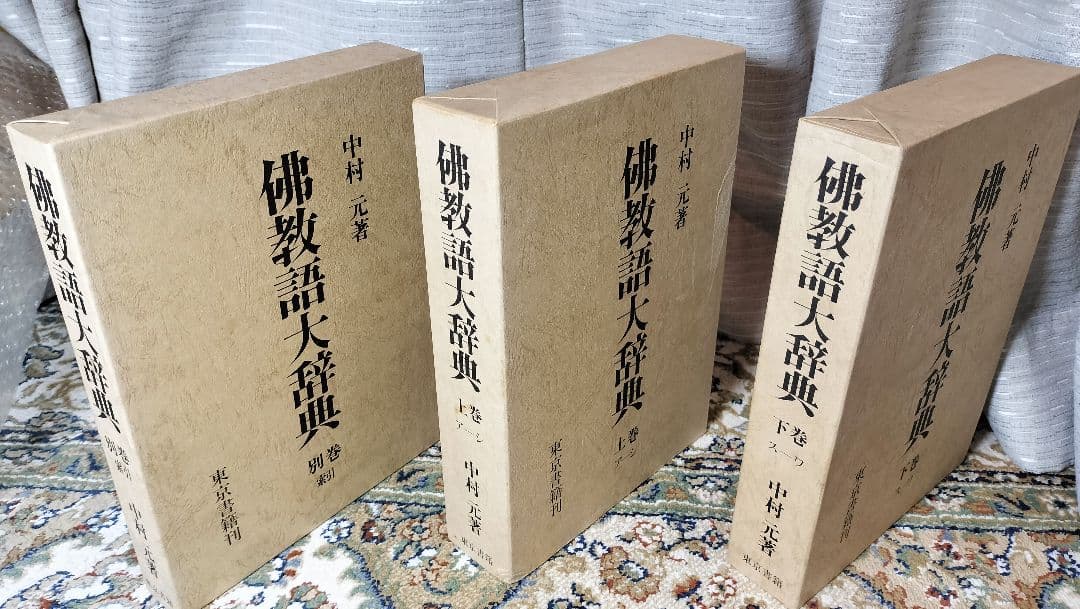 佛教語大辞典
別巻
索引
中村 元著
中村 元著
佛教語大辞典
別巻
索引
東京書籍刊
佛教語大辞典
上巻
ア―シ
中村 元著
東京書籍
中村 元著
佛教語大辞典
上巻
ア―シ
東京書籍刊
佛教語大辞典
下巻
ス―ワ
中村 元著
東京書籍
中村 元著
佛教語大辞典
下巻
東京書籍刊